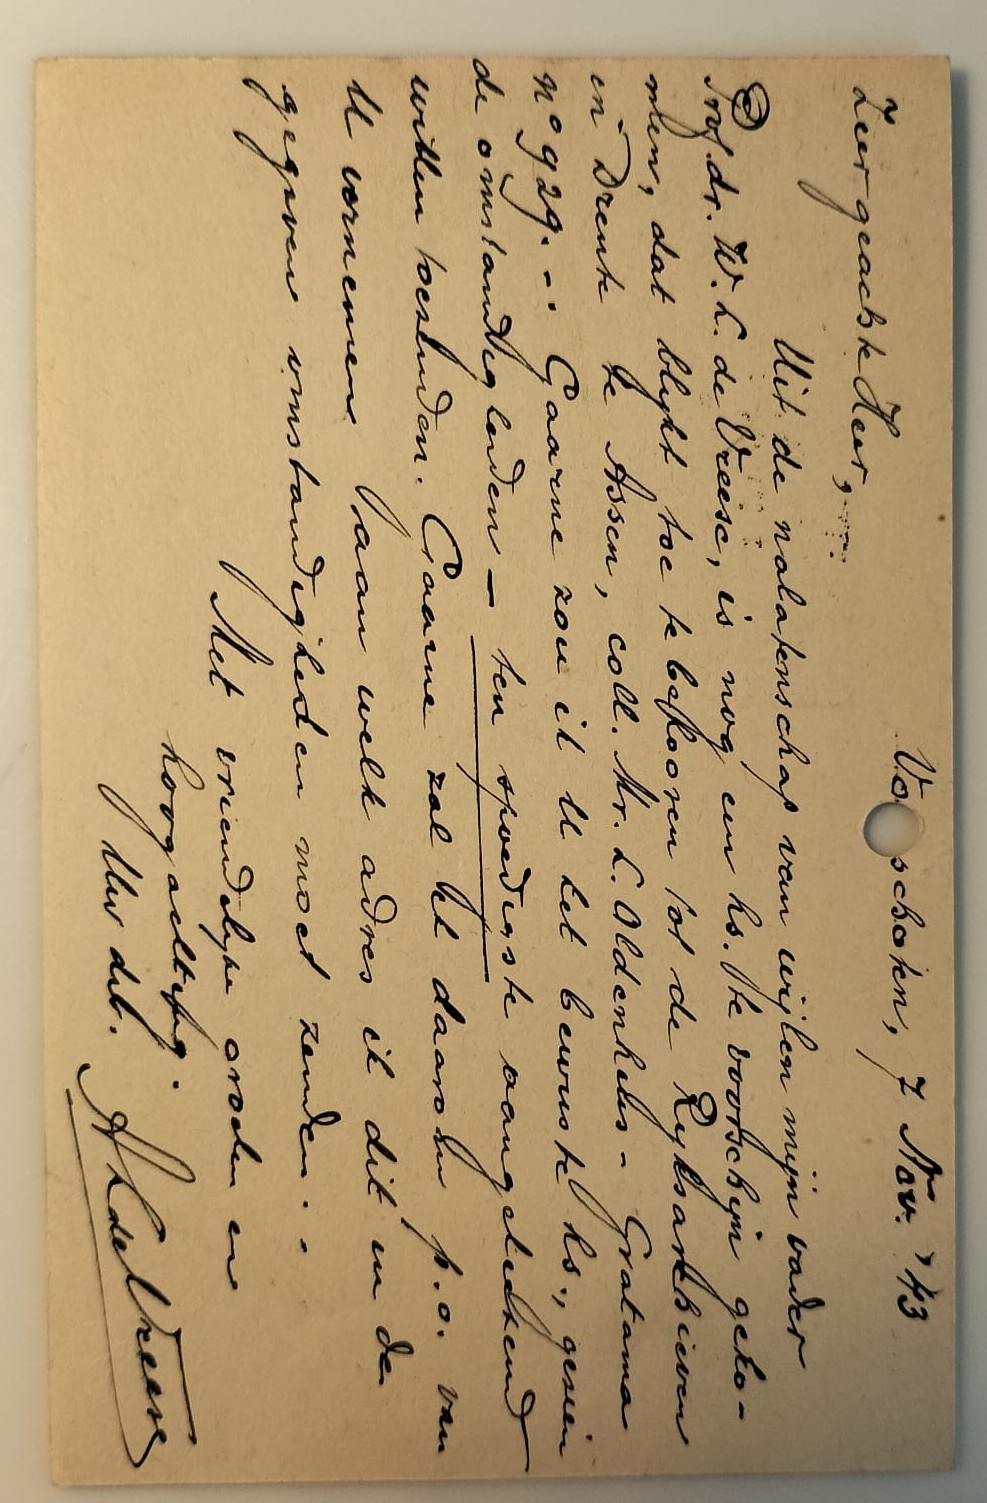 Voorschoten, 7 Nov. '43
Zeer geachte Heer,
Uit de nalatenschap van wijlen mijn vader
Prof. dr. W. L. de Vreese, is nog een hs. te voorschijn geko-
men, dat blijkt toe te behooren tot de Rijksarchieven
in Drente te Assen, coll. Mr. L. Oldenhuis - Gratama
no 929. - Gaarne zou ik U het bewuste hs., gezien
de omstandigheden — ten spoedigste aangeteekend
willen toezenden. Gaarne zal het daarom p.o. van
U vernemen aan welk adres ik dit in de
gegeven omstandigheden moet zenden. -
Met vriendelijke groeten en
hoogachting.
Uw dct.
A L de Vreese